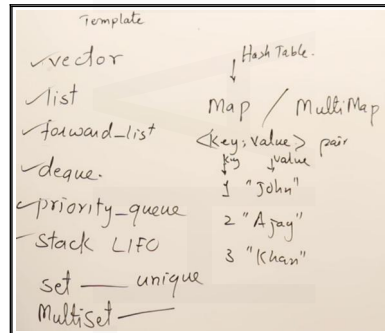 Template
vector
list
forward_list
deque.
priority_queue
Stack LIFO
set — unique
MultiSet —
Hash Table.
Map / MultiMap
<key, value> pair
key value
1 "John"
2 "Ajay"
3 "Khan"